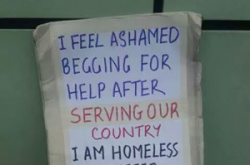 I FEEL ASHAMED
BEGGING FOR
HELP AFTER
SERVING OUR
COUNTRY
I AM HOMELESS